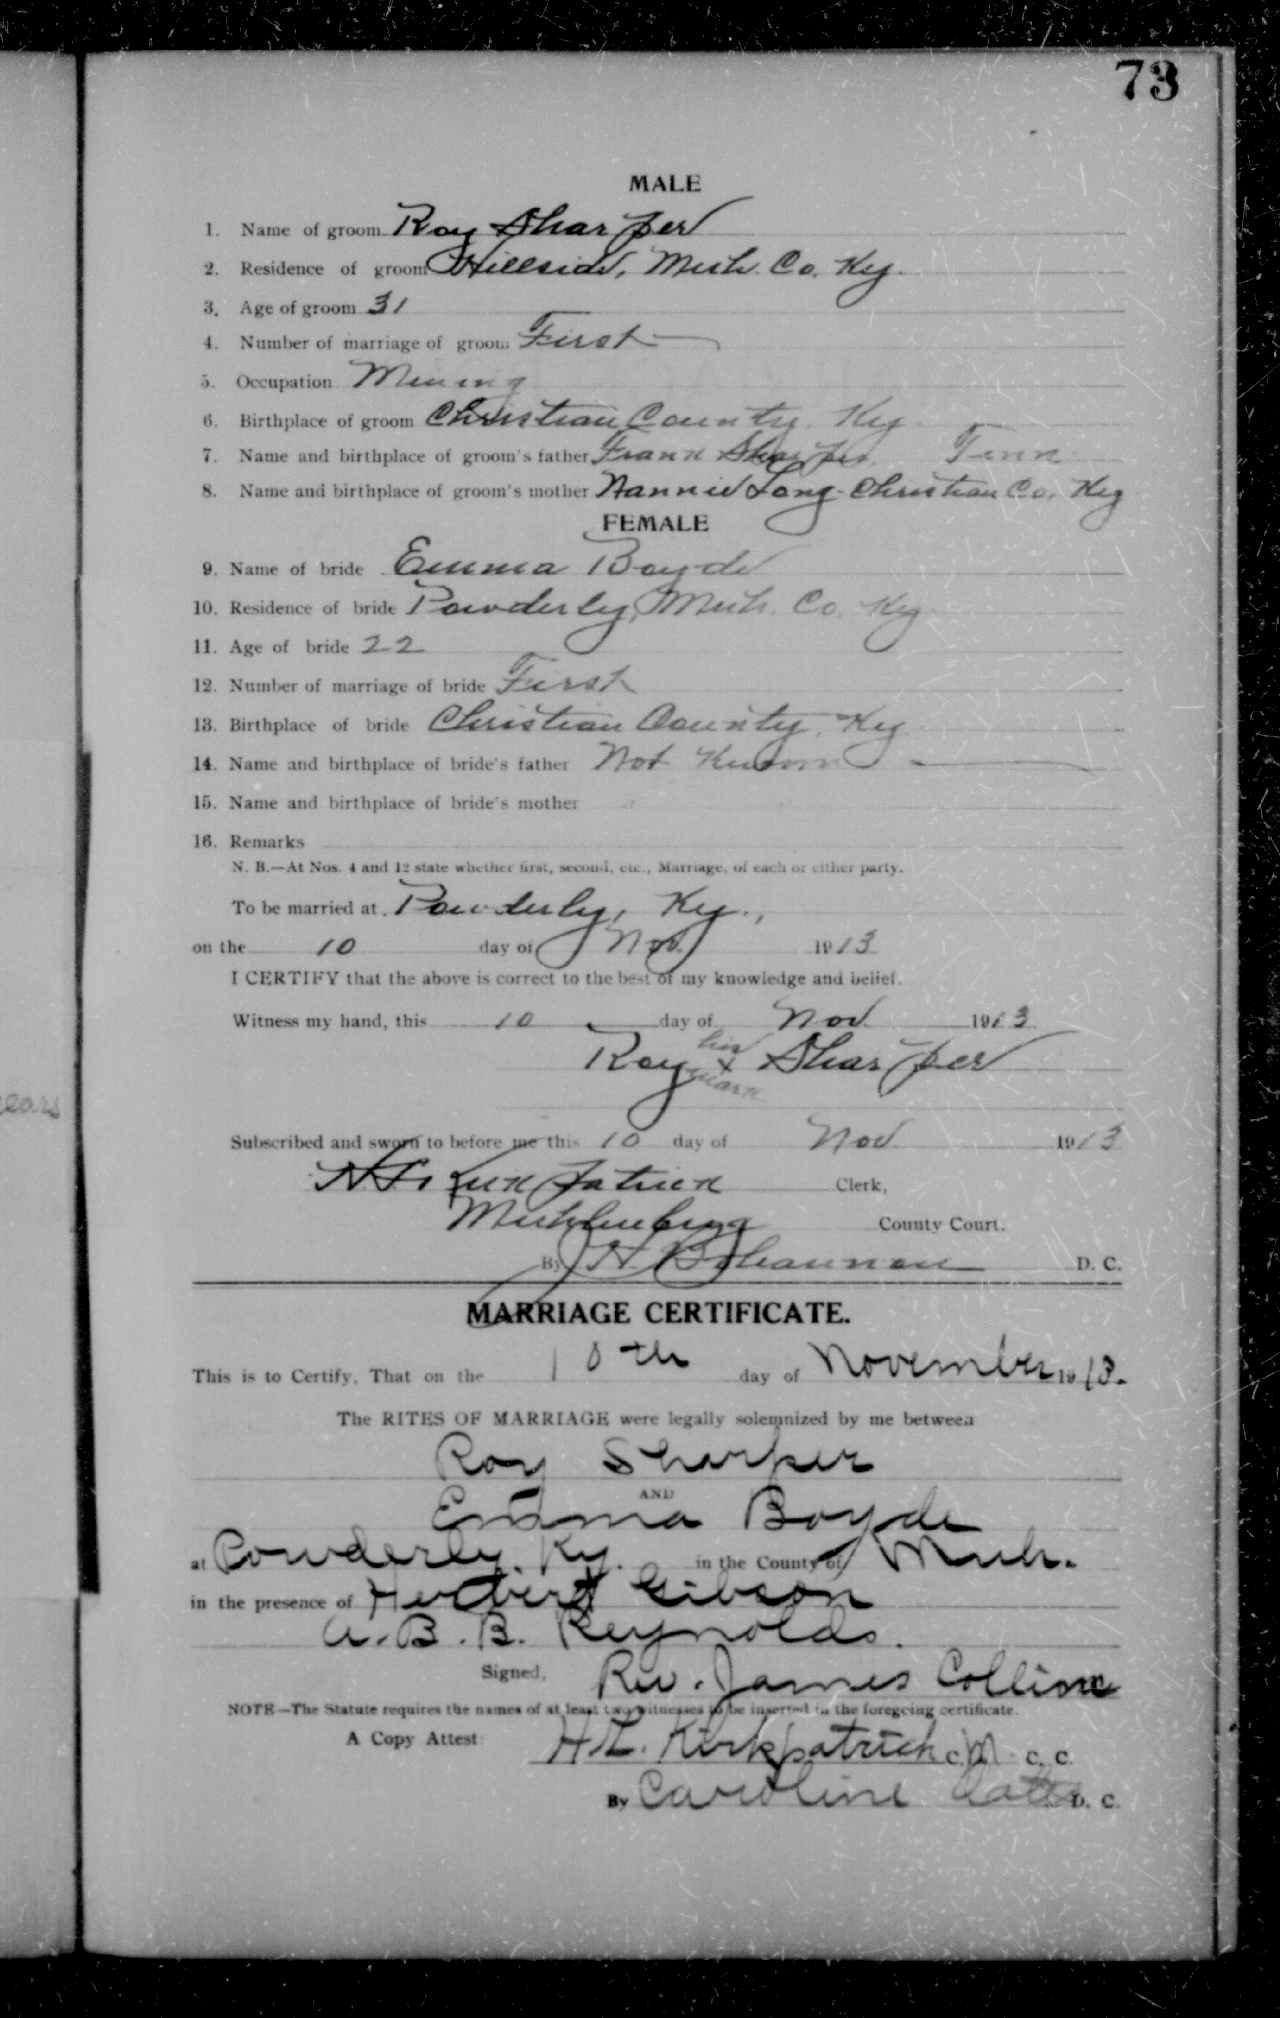 73
MALE
1. Name of groom Roy Sharper
2. Residence of groom Hillside, Muh. Co. Ky.
3. Age of groom 31
4. Number of marriage of groom First
5. Occupation Mining
6. Birthplace of groom Christian County, Ky
7. Name and birthplace of groom's father Frank Sharper, Tenn
8. Name and birthplace of groom's mother Nannie Long - Christian Co. Ky
FEMALE
9. Name of bride Emma Boyde
10. Residence of bride Powderly, Muh. Co. Ky
11. Age of bride 22
12. Number of marriage of bride First
13. Birthplace of bride Christian County, Ky
14. Name and birthplace of bride's father Not Known
15. Name and birthplace of bride's mother
16. Remarks
N. B.—At Nos. 4 and 12 state whether first, second, etc., Marriage, of each or either party.
To be married at Powderly, Ky.,
on the 10 day of Nov. 1913
I CERTIFY that the above is correct to the best of my knowledge and belief.
Witness my hand, this 10 day of Nov 1913
his
Roy x Sharper
mark
ears
Subscribed and sworn to before me this 10 day of Nov 1913
Kirkpatrick Clerk,
Muhlenberg County Court.
By J H Bohannon D. C.
MARRIAGE CERTIFICATE.
This is to Certify, That on the 10th day of November 1913.
The RITES OF MARRIAGE were legally solemnized by me between
Roy Sharper
AND
Emma Boyde
at Powderly, Ky. in the County of Muh.
in the presence of Herbert Gibson
A. B. B. Reynolds.
Signed, Rev. James Collins
NOTE—The Statute requires the names of at least two witnesses to be inserted in the foregoing certificate.
A Copy Attest: H. L. Kirkpatrick C. M. C. C.
By Caroline D. C.